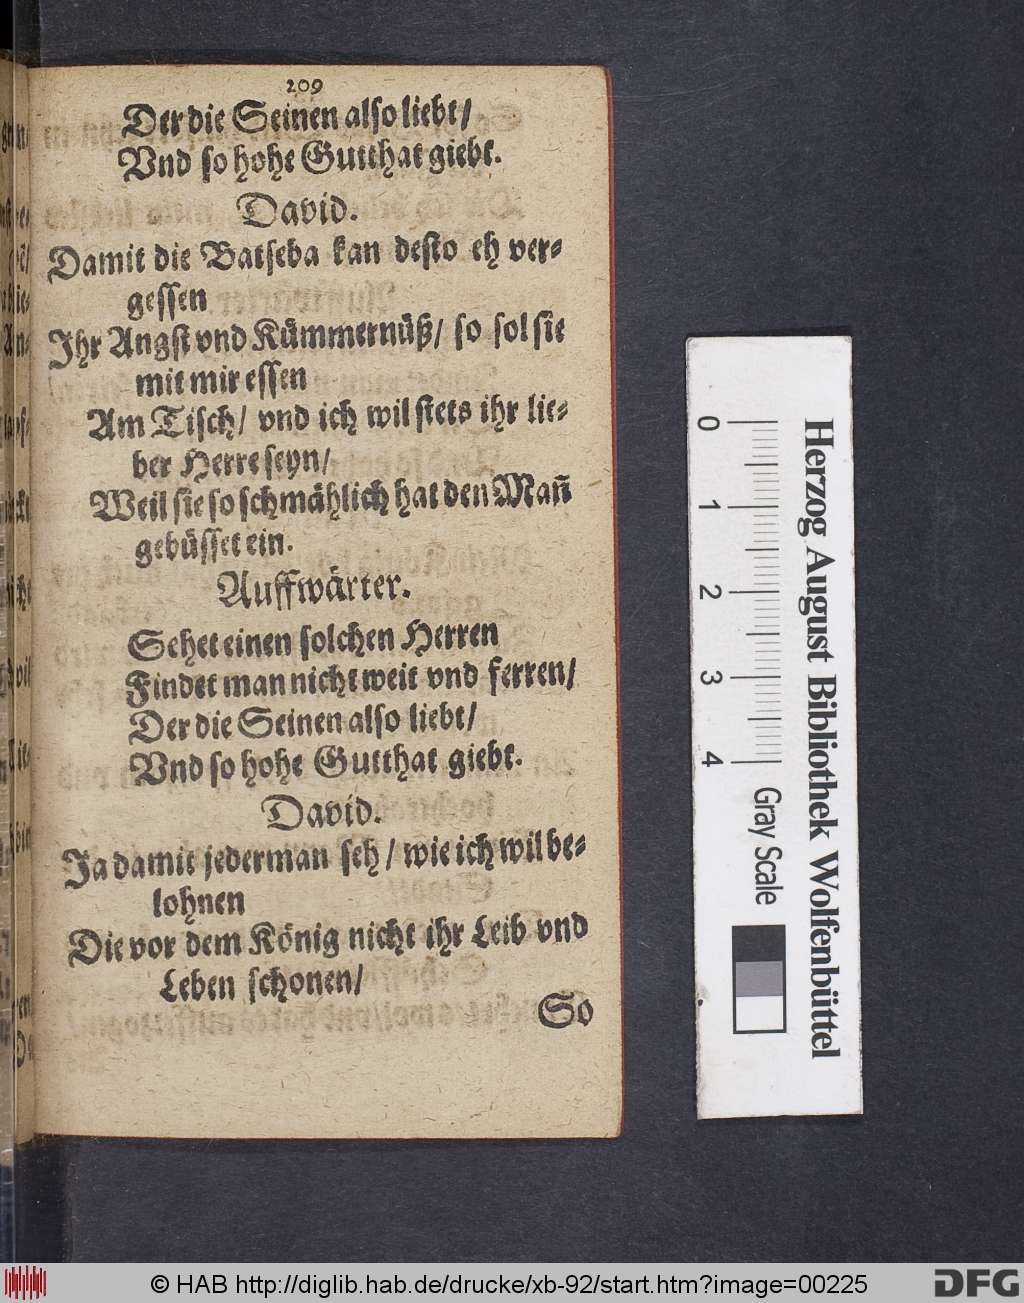 209
Der die Seinen also liebt/
Vnd so hohe Gutthat giebt.
David.
Damit die Batseba kan desto eh ver-
gessen
Ihr Angst vnd Kümmernüß/ so sol sie
mit mir essen
Am Tisch/ vnd ich wil stets ihr lie-
ber Herre seyn/
Weil sie so schmählich hat den Mañ
gebüsset ein.
Auffwärter.
Sehet einen solchen Herren
Findet man nicht weit vnd ferren/
Der die Seinen also liebt/
Vnd so hohe Gutthat giebt.
David.
Ja damit jederman seh/ wie ich wil be-
lohnen
Die vor dem König nicht ihr Leib vnd
Leben schonen/
So
0 1 2 3 4
Gray Scale
Herzog August Bibliothek Wolfenbüttel
© HAB http://diglib.hab.de/drucke/xb-92/start.htm?image=00225
DFG